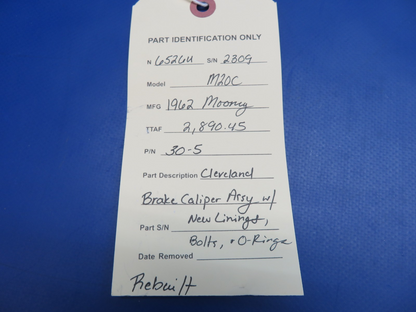 PART IDENTIFICATION ONLY
N 6526U S/N 2309
Model M20C
MFG 1962 Mooney
TTAF 2,890.45
P/N 30-5
Part Description Cleveland
Brake Caliper Assy w/
New Linings,
Part S/N
Bolts, + O-Rings
Date Removed
Rebuilt